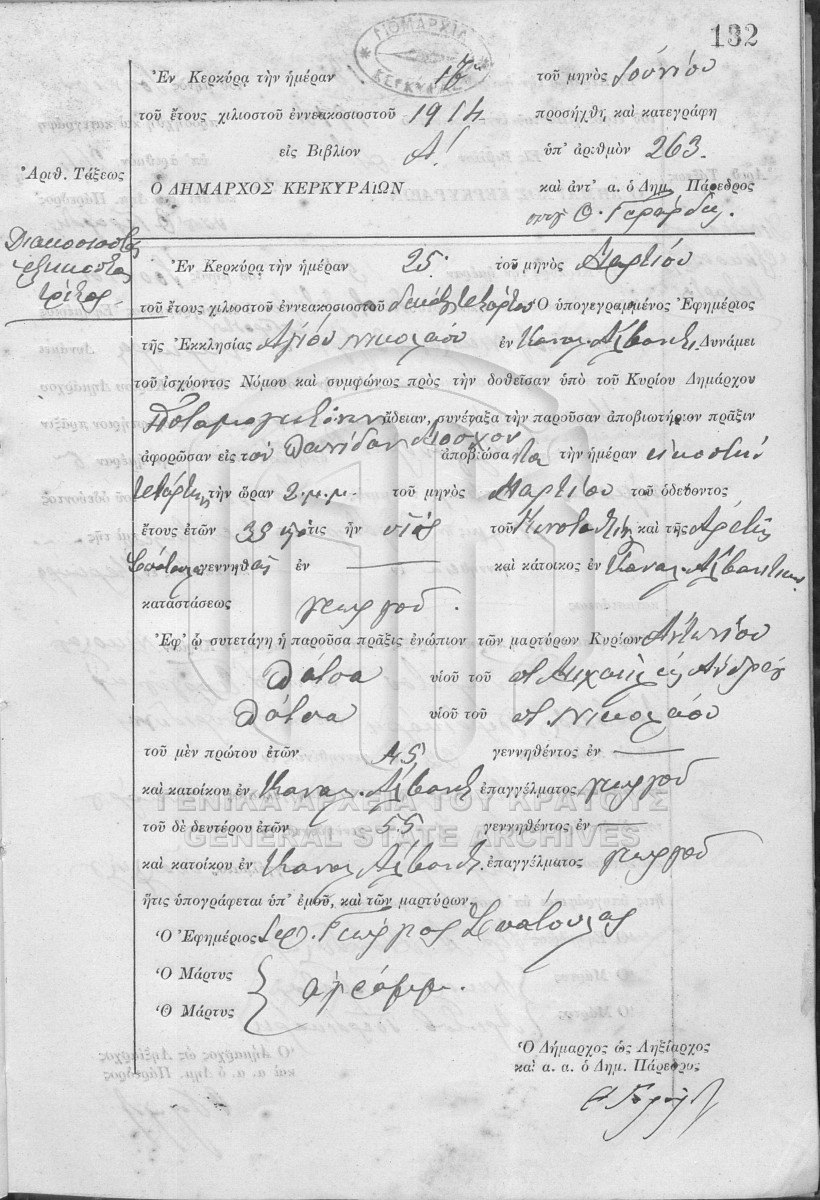 132
ΔΗΜΑΡΧΙΑ ΚΕΡΚΥΡΑΣ
Ἐν Κερκύρᾳ τὴν ἡμέραν 17 τοῦ μηνὸς Ἰουνίου
τοῦ ἔτους χιλιοστοῦ ἐννεακοσιοστοῦ 1914 προσήχθη καὶ κατεγράφη
εἰς Βιβλίον Α! ὑπ' ἀριθμὸν 263.
Ἀριθ. Τάξεως
Ο ΔΗΜΑΡΧΟΣ ΚΕΡΚΥΡΑΙΩΝ καὶ ἀντ' α. ὁ Δημ. Πάρεδρος
Διακοσιοστὸς
ἑξηκοστὸς
τρίτος
Ἐν Κερκύρᾳ τὴν ἡμέραν 25 τοῦ μηνὸς Μαρτίου
τοῦ ἔτους χιλιοστοῦ ἐννεακοσιοστοῦ δεκάτου τετάρτου Ὁ ὑπογεγραμμένος Ἐφημέριος
τῆς Ἐκκλησίας Ἁγίου Νικολάου ἐν Δυνάμει
τοῦ ἰσχύοντος Νόμου καὶ συμφώνως πρὸς τὴν δοθεῖσαν ὑπὸ τοῦ Κυρίου Δημάρχου
ἄδειαν, συνέταξα τὴν παροῦσαν ἀποβιωτήριον πρᾶξιν
ἀφορῶσαν εἰς τὸν Μοσχου ἀποβιώσαντα τὴν ἡμέραν εἰκοστὴν
τετάρτην τὴν ὥραν 2 μ.μ. τοῦ μηνὸς Μαρτίου τοῦ ὁδεύοντος
ἔτους ἐτῶν 35 ὅστις ἦν υἱὸς τοῦ Κωνσταντίνου καὶ τῆς Ἀρετῆς
γεννηθεὶς ἐν — καὶ κάτοικος ἐν
καταστάσεως γεωργοῦ.
Ἐφ' ᾧ συνετάγη ἡ παροῦσα πρᾶξις ἐνώπιον τῶν μαρτύρων Κυρίων Ἀντωνίου
Λάτσα υἱοῦ τοῦ π. Μιχαήλ καὶ Ἀνδρέου
Λάτσα υἱοῦ τοῦ π. Νικολάου
τοῦ μὲν πρώτου ἐτῶν 45 γεννηθέντος ἐν —
καὶ κατοίκου ἐν ἐπαγγέλματος γεωργοῦ
ΓΕΝΙΚΑ ΑΡΧΕΙΑ ΤΟΥ ΚΡΑΤΟΥΣ
τοῦ δὲ δευτέρου ἐτῶν 55 γεννηθέντος ἐν —
GENERAL STATE ARCHIVES
καὶ κατοίκου ἐν ἐπαγγέλματος γεωργοῦ
ἥτις ὑπογράφεται ὑπ' ἐμοῦ, καὶ τῶν μαρτύρων.
Ὁ Ἐφημέριος Ἱερ. Γεώργιος Σπάτουλας
Ὁ Μάρτυς
ἀγράμμ.
Ὁ Μάρτυς
Ὁ Δήμαρχος ὡς Ληξίαρχος
καὶ α. α. ὁ Δημ. Πάρεδρος